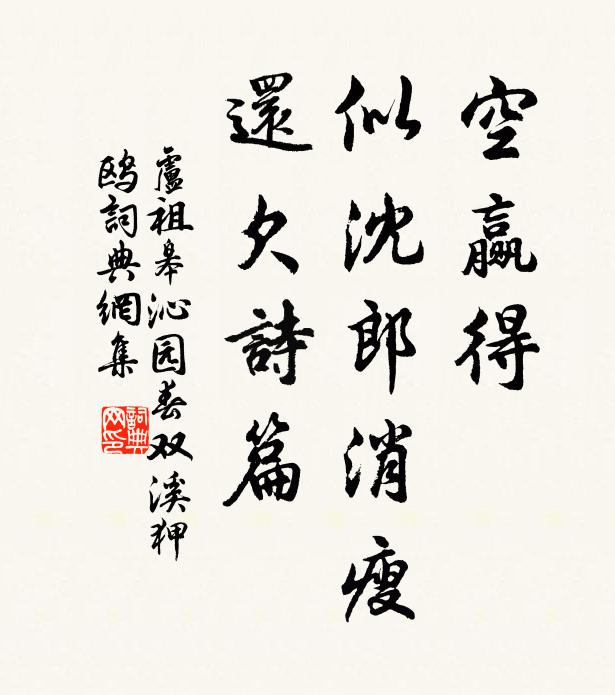 空贏得
似沈郎消瘦
還欠詩篇
盧祖皋沁园春双溪狎
鸥詞典網集
詞典网印